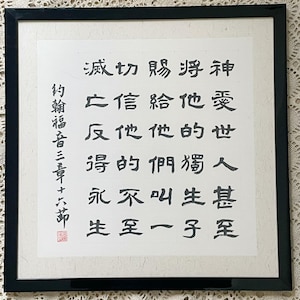 神愛世人甚至
將他的獨生子
賜給他們叫一
切信他的不至
滅亡反得永生
約翰福音三章十六節